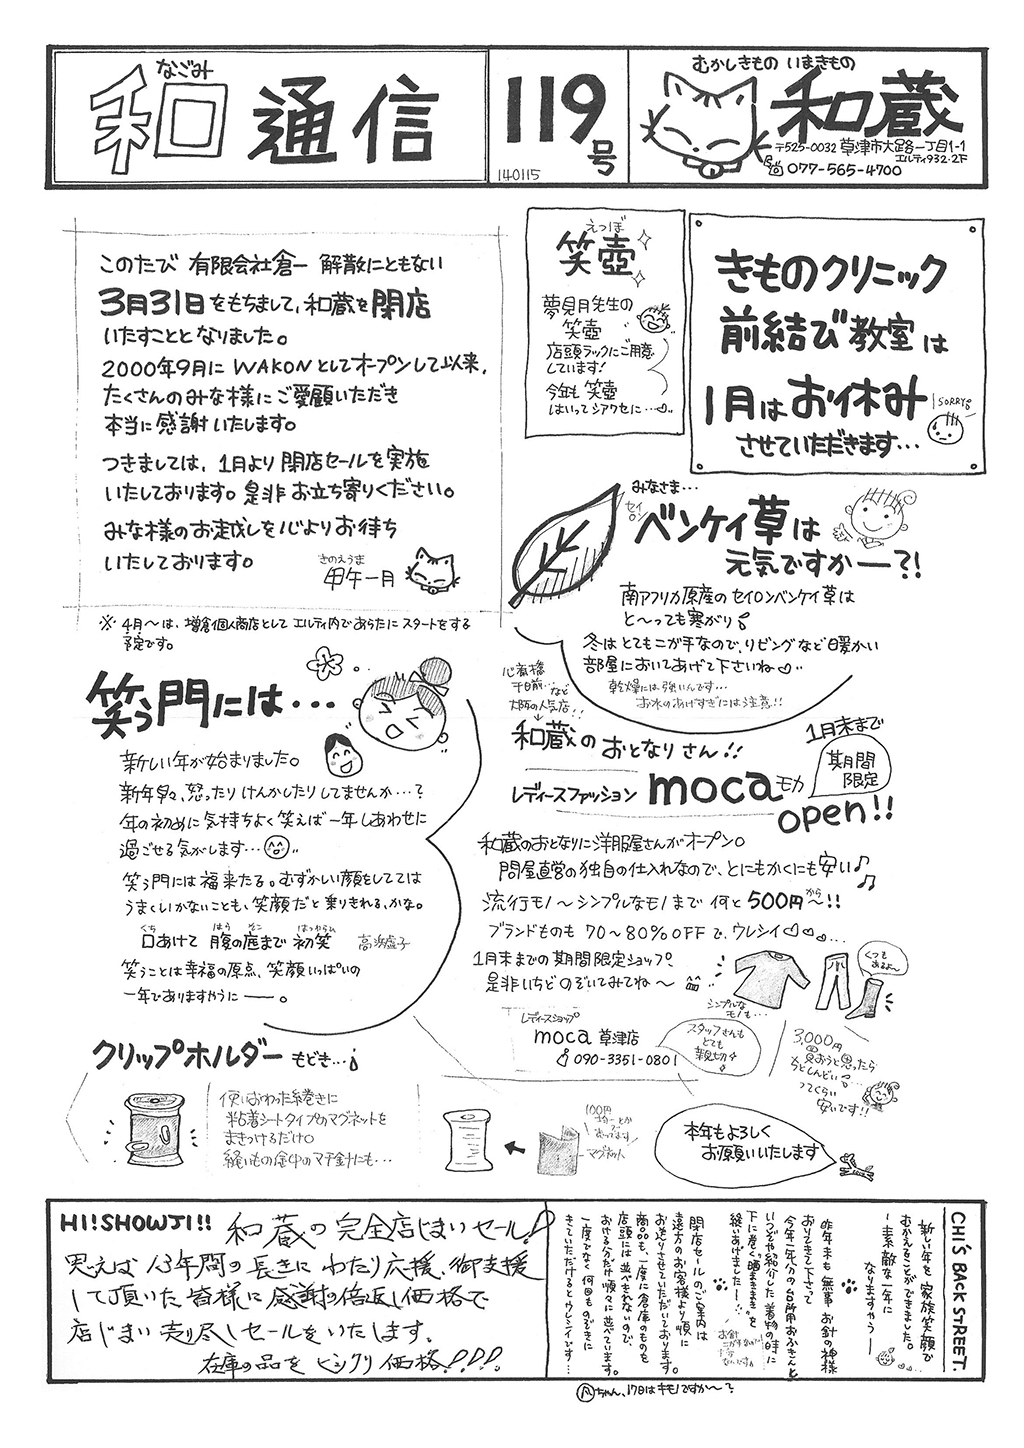 なごみ
和通信
119号
140115
むかしきもの いまきもの
和蔵
〒525-0032 草津市大路一丁目1-1
エルティ932・2F
077-565-4700
このたび 有限会社倉一 解散にともない
3月31日をもちまして、和蔵を閉店
いたすこととなりました。
2000年9月に WAKONとしてオープンして以来、
たくさんのみな様にご愛顧いただき
本当に感謝いたします。
つきましては、1月より閉店セールを実施
いたしております。是非お立ち寄りください。
みな様のお越しを心よりお待ち
いたしております。
きのえうま
甲午一月
※ 4月〜は、増倉個人商店として エルティ内であらたに スタートをする
予定です。
えつぼ
笑壺
夢見月先生の
笑壺
店頭ラックにご用意
しています!
今年も 笑壺
はいってシアワセに…
きものクリニック
前結び教室は
1月はお休み
SORRY
させていただきます…
みなさま…
セイロン
ベンケイ草は
元気ですかー?!
南アフリカ原産の セイロンベンケイ草は
と〜っても寒がり
冬は とてもニガ手なので、リビングなど暖かい
部屋においてあげて下さいね
乾燥には強いんです…
お水のあげすぎには注意!!
笑う門には…
新しい年が始まりました。
新年早々、怒ったりけんかしたりしてませんか…?
年の初めに気持ちよく笑えば一年しあわせに
過ごせる気がします…
笑う門には福来たる。むずかしい顔をしてては
うまくいかないことも、笑顔だと乗りきれる、かな。
くち はら そこ はつわらひ
口あけて 腹の底まで 初笑 高浜虚子
笑うことは幸福の原点、笑顔いっぱいの
一年でありますやうに ー 。
心斎橋
千日前…など
大阪の人気店!!
和蔵の おとなりさん!!
1月末まで
期間
限定
レディースファッション moca モカ
open!!
和蔵のおとなりに洋服屋さんがオープン。
問屋直営の独自の仕入れなので、とにもかくにも安い♪
流行モノ〜シンプルなモノまで 何と500円から〜!!
ブランドものも 70〜80%OFFで、ウレシイ…
1月末までの期間限定ショップ。
是非いちどのぞいてみてね〜
シンプルな
モノも…
くつも
あるよ〜
レディースショップ
moca 草津店
090-3351-0801
スタッフさんも
とても
親切
3,000円
買おうと思ったら
ってくらい
安いです!!
クリップホルダー もどき…
使いおわった糸巻きに
粘着シートタイプのマグネットを
まきつけるだけ。
縫いもの途中のマチ針にも…
100円
マグネット
本年もよろしく
お願いいたします
HI!SHOWJI!!
和蔵の完全店じまいセール!
思えば13年間の長きにわたり応援、御支援
して頂いた皆様に感謝の倍返し価格で
店じまい売り尽しセールをいたします。
在庫の品をビックリ価格!!!
CHI'S BACK STREET.
新しい年を家族笑顔で
むかえることができました。
素敵な一年に
なりますやうー
昨年末も無事お針の神様
おりてきて下さって
今年一年分の台所用おふきんと
いつぞや紹介した着物の時に
下に巻く“晒ままき”を
縫いあげましたー!
閉店セールのご案内は
遠方のお客様より順に
お送りさせていただいております。
商品も、一度に倉庫のものを
店頭には並べきれないので、
おける分だけ順々に並べています。
一度でなく何回ものぞきに
きていただけるとウレシイです…
ちゃん、17日はキモノですか〜?